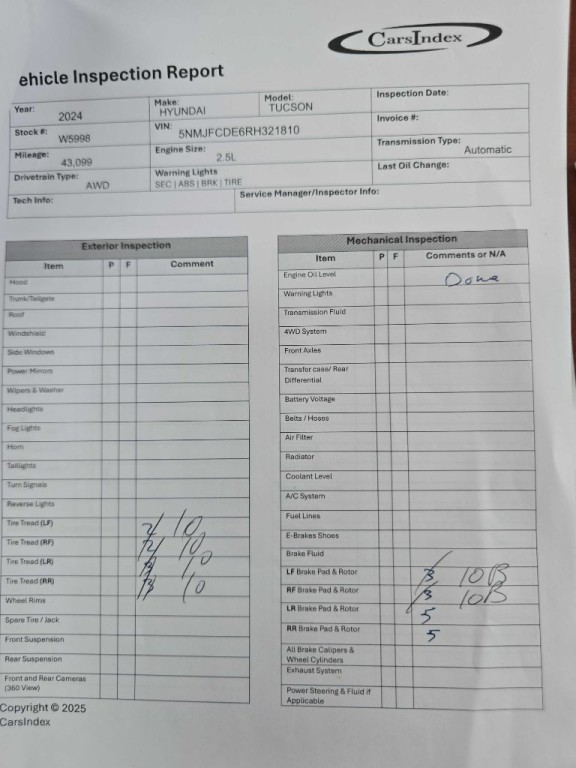 CarsIndex
ehicle Inspection Report
Year: 2024 Make: HYUNDAI Model: TUCSON Inspection Date:
Stock #: W5998 VIN: 5NMJFCDE6RH321810 Invoice #:
Mileage: 43,099 Engine Size: 2.5L Transmission Type: Automatic
Drivetrain Type: AWD Warning Lights SEC | ABS | BRK | TIRE Last Oil Change:
Tech Info: Service Manager/Inspector Info:
Exterior Inspection
Item P F Comment
Hood
Trunk/Tailgate
Roof
Windshield
Side Windows
Power Mirrors
Wipers & Washer
Headlights
Fog Lights
Horn
Taillights
Turn Signals
Reverse Lights
Tire Tread (LF) 10
Tire Tread (RF) 10
Tire Tread (LR) 10
Tire Tread (RR) 10
Wheel Rims
Spare Tire / Jack
Front Suspension
Rear Suspension
Front and Rear Cameras
(360 View)
Mechanical Inspection
Item P F Comments or N/A
Engine Oil Level Done
Warning Lights
Transmission Fluid
4WD System
Front Axles
Transfer case/ Rear
Differential
Battery Voltage
Belts / Hoses
Air Filter
Radiator
Coolant Level
A/C System
Fuel Lines
E-Brakes Shoes
Brake Fluid
LF Brake Pad & Rotor 3 10B
RF Brake Pad & Rotor 3 10B
LR Brake Pad & Rotor 5
RR Brake Pad & Rotor 5
All Brake Calipers &
Wheel Cylinders
Exhaust System
Power Steering & Fluid if
Applicable
Copyright © 2025
CarsIndex